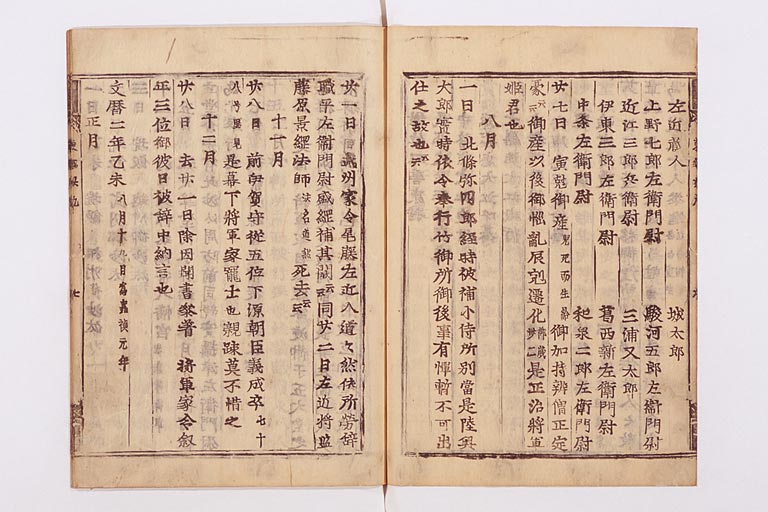 左近蔵人 城太郎
上野七郎左衛門尉 駿河五郎左衛門尉
近江三郎兵衛尉 三浦又太郎
伊東三郎左衛門尉 葛西新左衛門尉
中条左衛門尉 和泉二郎左衛門尉
廿七日 寅剋御産 児死而生給 御加持辨僧正定
豪云云 御産以後御悩乱辰剋遷化 御歳卅二 是正治将軍
姫君也
八月
一日 北條弥四郎経時被補小侍所別當是陸奥
太郎實時依令奉行竹御所御後事有憚暫不可出
仕之故也云云
廿一日 武州家令尾藤左近入道々然依所勞辞
職平左衛門尉盛綱補其闕云云同廿二日左近将監
藤原景経法師 法名道然 死去云云
十一月
廿八日 前伊賀守従五位下源朝臣義成卒 七十
是幕下将軍家寵士也親疎莫不惜之
十二月
廿八日 去廿一日除目聞書參着 将軍家令叙
三位御彼日被辞中納言也
文暦二年乙未 九月十九日為嘉禎元年
一日正月